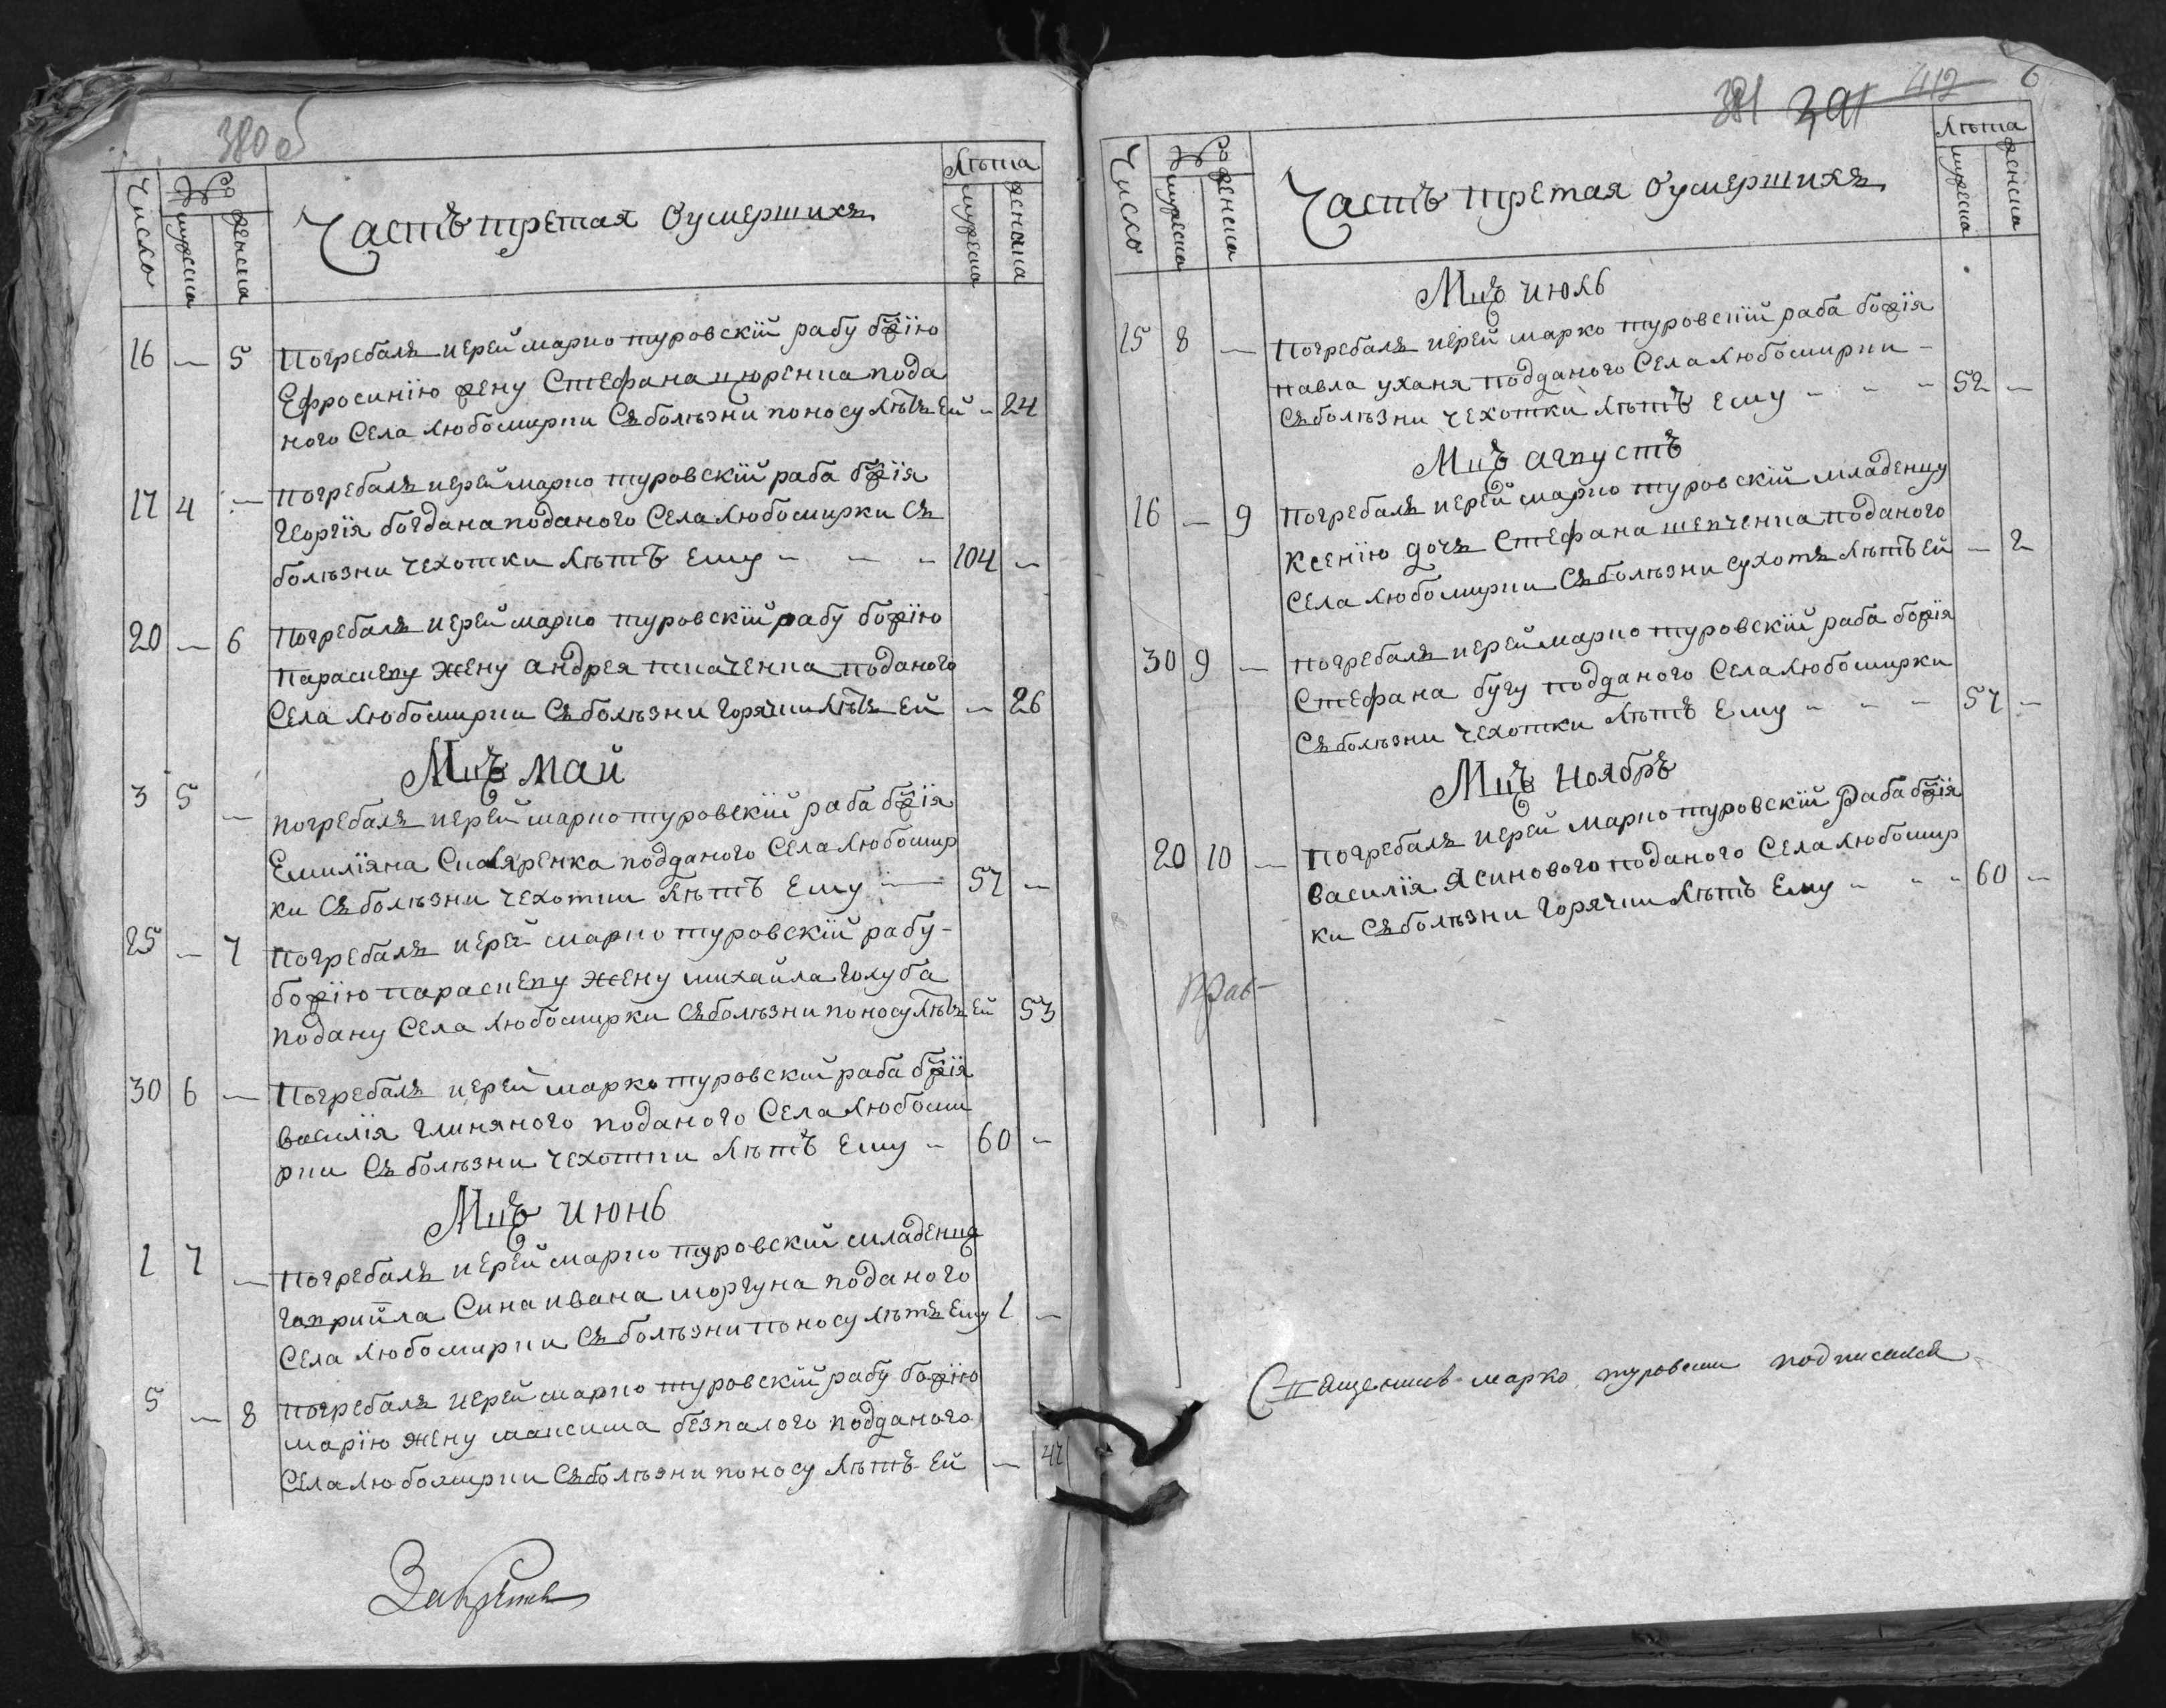 380 об
Число
мужеска
женска
Часть третая оумершихъ
Лѣта
мужеска
женска
16 — 5 Погребалъ иерей марко туровскїй рабу бжїю
Ефросинїю жену Стефана цюренка пода
ного Села Любомирки Съ болѣзни поносу лѣтъ Ей — 24
17 4 — погребалъ иерей марко туровскїй раба бжїя
Георгїя богдана поданого Села Любомирки Съ
болѣзни чехотки лѣтъ Ему — — — 104 —
20 — 6 Погребалъ иерей марко туровскїй рабу божїю
параскеву жену андрея ткаченка поданого
Села Любомирки Съ болѣзни горячки лѣтъ Ей — 26
Мцъ май
3 5 — погребалъ иерей марко туровскїй раба бжїя
Емилїяна Скляренка подданого Села Любомир
ки Съ болѣзни чехотки лѣтъ Ему — 57 —
25 — 7 Погребалъ иерей марко туровскїй рабу-
божїю параскеву жену михайла голуба
подану Села Любомирки Съ болѣзни поносу лѣтъ Ей 53
30 6 — Погребалъ иерей марко туровский раба бжїя
василїя глиняного поданого Села Любоми
рки Съ болѣзни чехотки лѣтъ Ему — 60 —
Мцъ июнь
1 7 — Погребалъ иерей марко туровский младенца
гаврийла Сина ивана моргуна поданого
Села Любомирки Съ болѣзни поносу лѣтъ Ему 1 —
5 — 8 погребалъ иерей марко туровскїй рабу божїю
марїю жену максима безпалого подданого
Села Любомирки Съ болѣзни поносу лѣтъ Ей — 47
381 391 412 6
Число
мужеска
женска
Часть третая оумершихъ
Лѣта
мужеска
женска
Мцъ июль
15 8 — Погребалъ иерей марко туровский раба божїя
павла уханя подданого Села Любомирки —
Съ болѣзни чехотки лѣтъ Ему — — — 52 —
Мцъ августъ
16 — 9 Погребалъ иерей марко туровскїй младенцу
Ксенїю дочь Стефана шевченка поданого
Села Любомирки Съ болѣзни сухотъ лѣтъ Ей — 2
30 9 — погребалъ иерей марко туровскїй раба божїя
Стефана бугу подданого Села Любомирки
Съ болѣзни чехотки лѣтъ Ему — — — 57 —
Мцъ Ноябръ
20 10 — Погребалъ иерей марко туровскїй Раба бжїя
василїя Ясинового поданого Села Любомир
ки Съ болѣзни горячки лѣтъ Ему — — — 60 —
Священикъ марко туровски подписался